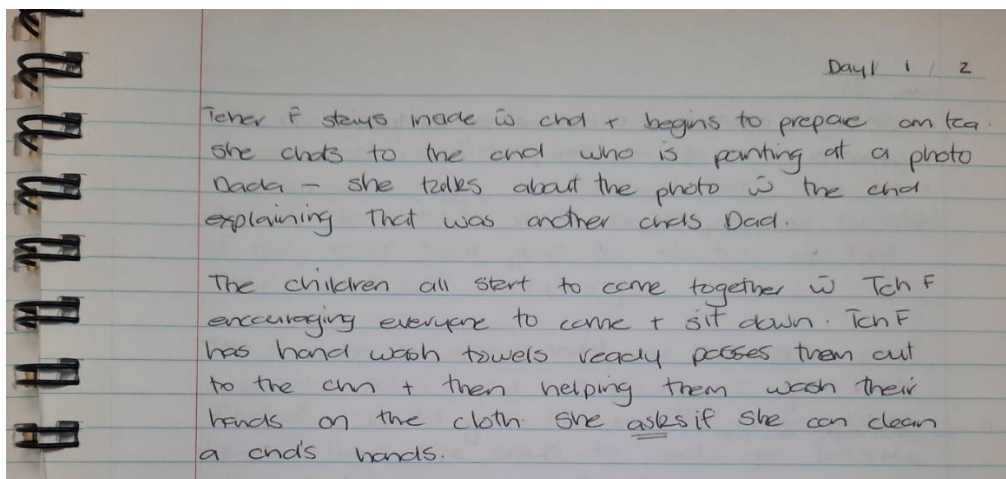 Day 1 1 / 2
Tcher F stays inside w̄ chd + begins to prepare am tea.
She chats to the chd who is pointing at a photo
Dada – she talks about the photo w̄ the chd
explaining that was another chds Dad.
The children all start to come together w̄ Tch F
encouraging everyone to come + sit down. Tch F
has hand wash towels ready passes them out
to the chn + then helping them wash their
hands on the cloth. She asks if she can clean
a chd's hands.